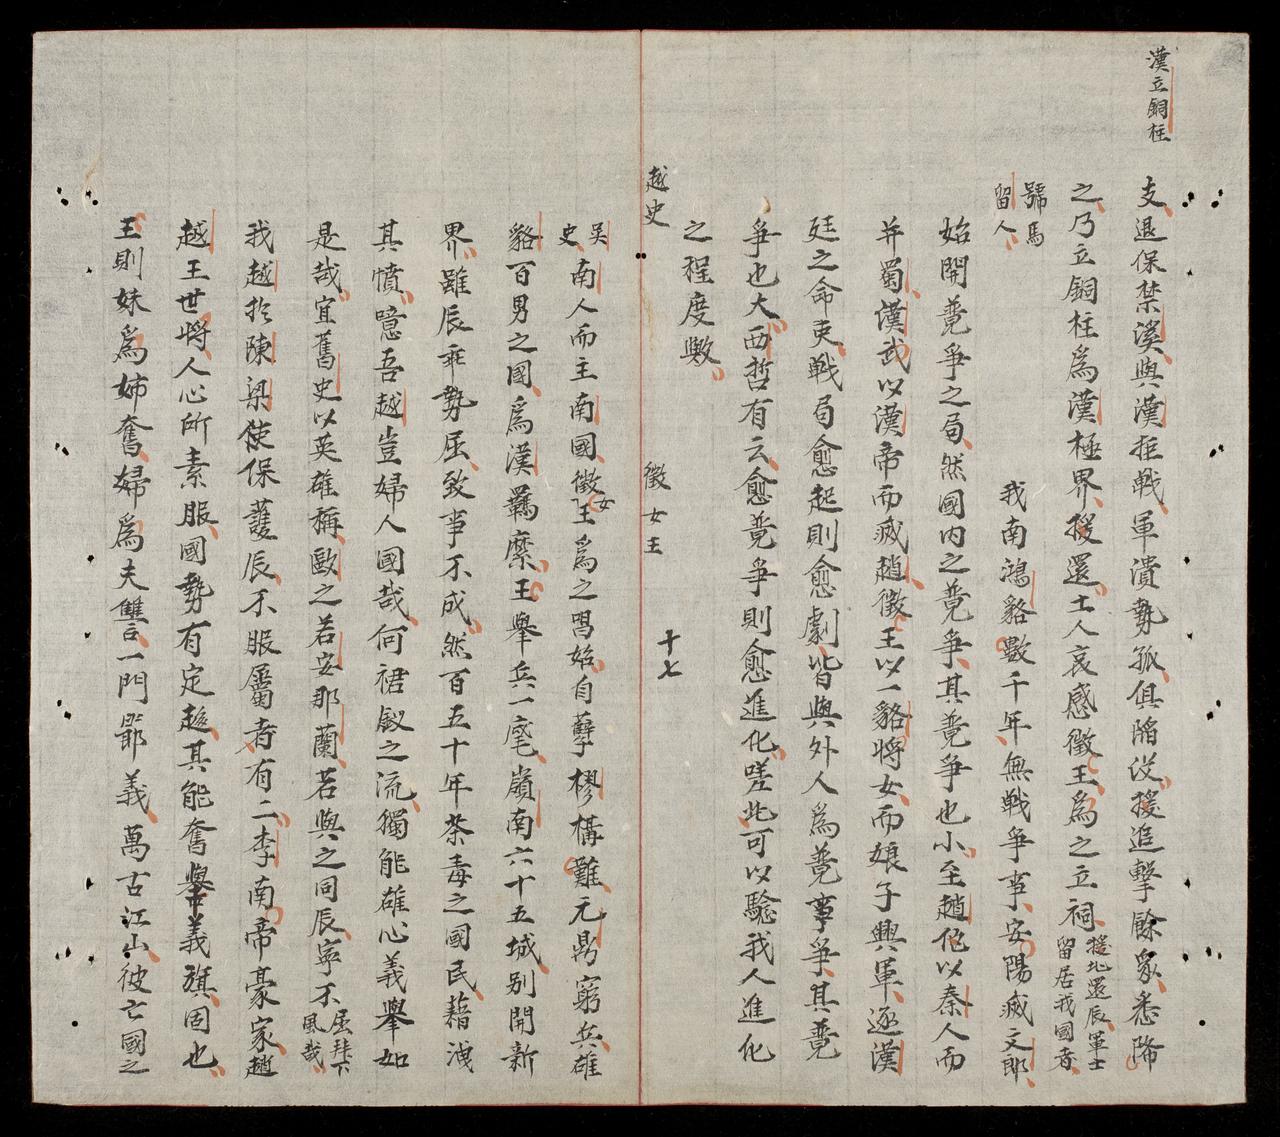 漢立銅柱
支退保禁溪與漢拒戰軍潰勢孤俱陷没援追擊餘衆悉降
之乃立銅柱爲漢極界援還士人哀感徵王爲之立祠援北還辰軍士留居我國者
號馬留人
我南鴻貉數千年無戰爭事安陽滅文郎
始開競爭之局然國内之競爭其競爭也小至趙佗以秦人而
并蜀漢武以漢帝而滅趙徵王以一貉將女而娘子興軍逐漢
廷之命吏戰局愈起則愈劇皆與外人爲競事爭其競
爭也大西哲有云愈競爭則愈進化嗟此可以驗我人進化
之程度歟
越史
徵女王
十七
吳史
南人而主南國徵女王爲之唱始自孽樛構難元鼎窮兵雄
貉百男之國爲漢羈縻王舉兵一麾嶺南六十五城别開新
界雖辰乖勢屈致事不成然百五十年荼毒之國民藉洩
其憤噫吾越豈婦人國哉何裙釵之流獨能雄心義舉如
是哉宜舊史以英雄稱歐之若安那蘭若與之同辰寧不屈拜下風哉
我越於陳梁使保護辰不服屬者有二李南帝豪家趙
越王世將人心所素服國勢有定趍其能奮舉義旗固也
王則妹爲姊奮婦爲夫讐一門節義萬古江山彼亡國之